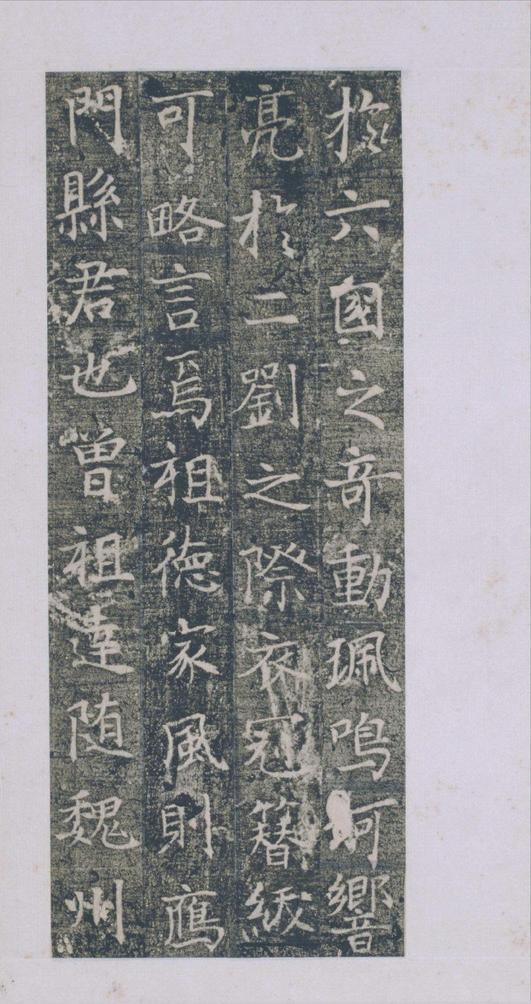 於六國之奇動珮鳴珂響
亮於二劉之際衣冠簪紱
可略言焉祖德家風則鴈
門縣君也曾祖達隨魏州